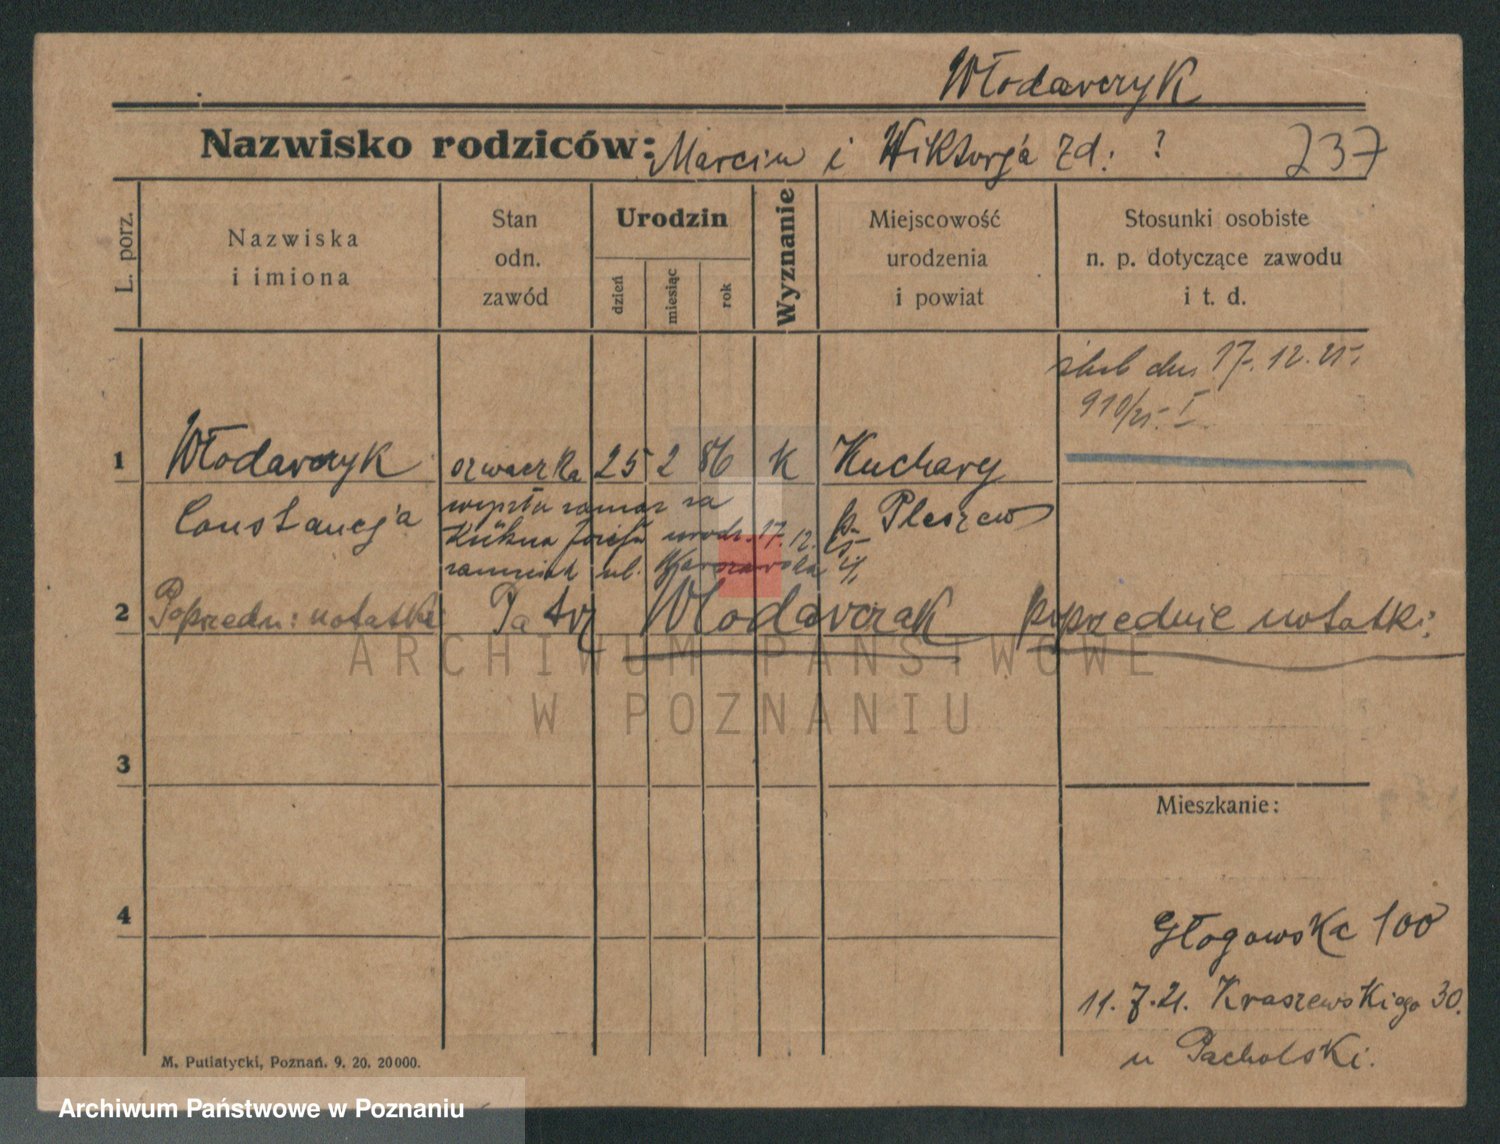 Włodarczyk
Nazwisko rodziców: Marcin i Wiktorja zd. ?
237
L. porz.
Nazwiska
i imiona
Stan
odn.
zawód
Urodzin
dzień
miesiąc
rok
Wyznanie
Miejscowość
urodzenia
i powiat
Stosunki osobiste
n. p. dotyczące zawodu
i t. d.
ślub dn. 17.12.25
910/25 I
1 Włodarczyk szwaczka 25 2 86 k Kuchary
Constancja
p. Pleszew
wyszła zamąz za
Kühna Józefa urodz. 17.12.
zamieszk ul. Warszawska
2 Poprzedn: notatki Patrz Wlodarczak poprzednie notatki.
3
Mieszkanie:
4
Głogowska 100
11.7.21. Kraszewskiego 30.
u Pacholski.
M. Putiatycki, Poznań. 9. 20. 20000.
ARCHIWUM PAŃSTWOWE
W POZNANIU
Archiwum Państwowe w Poznaniu